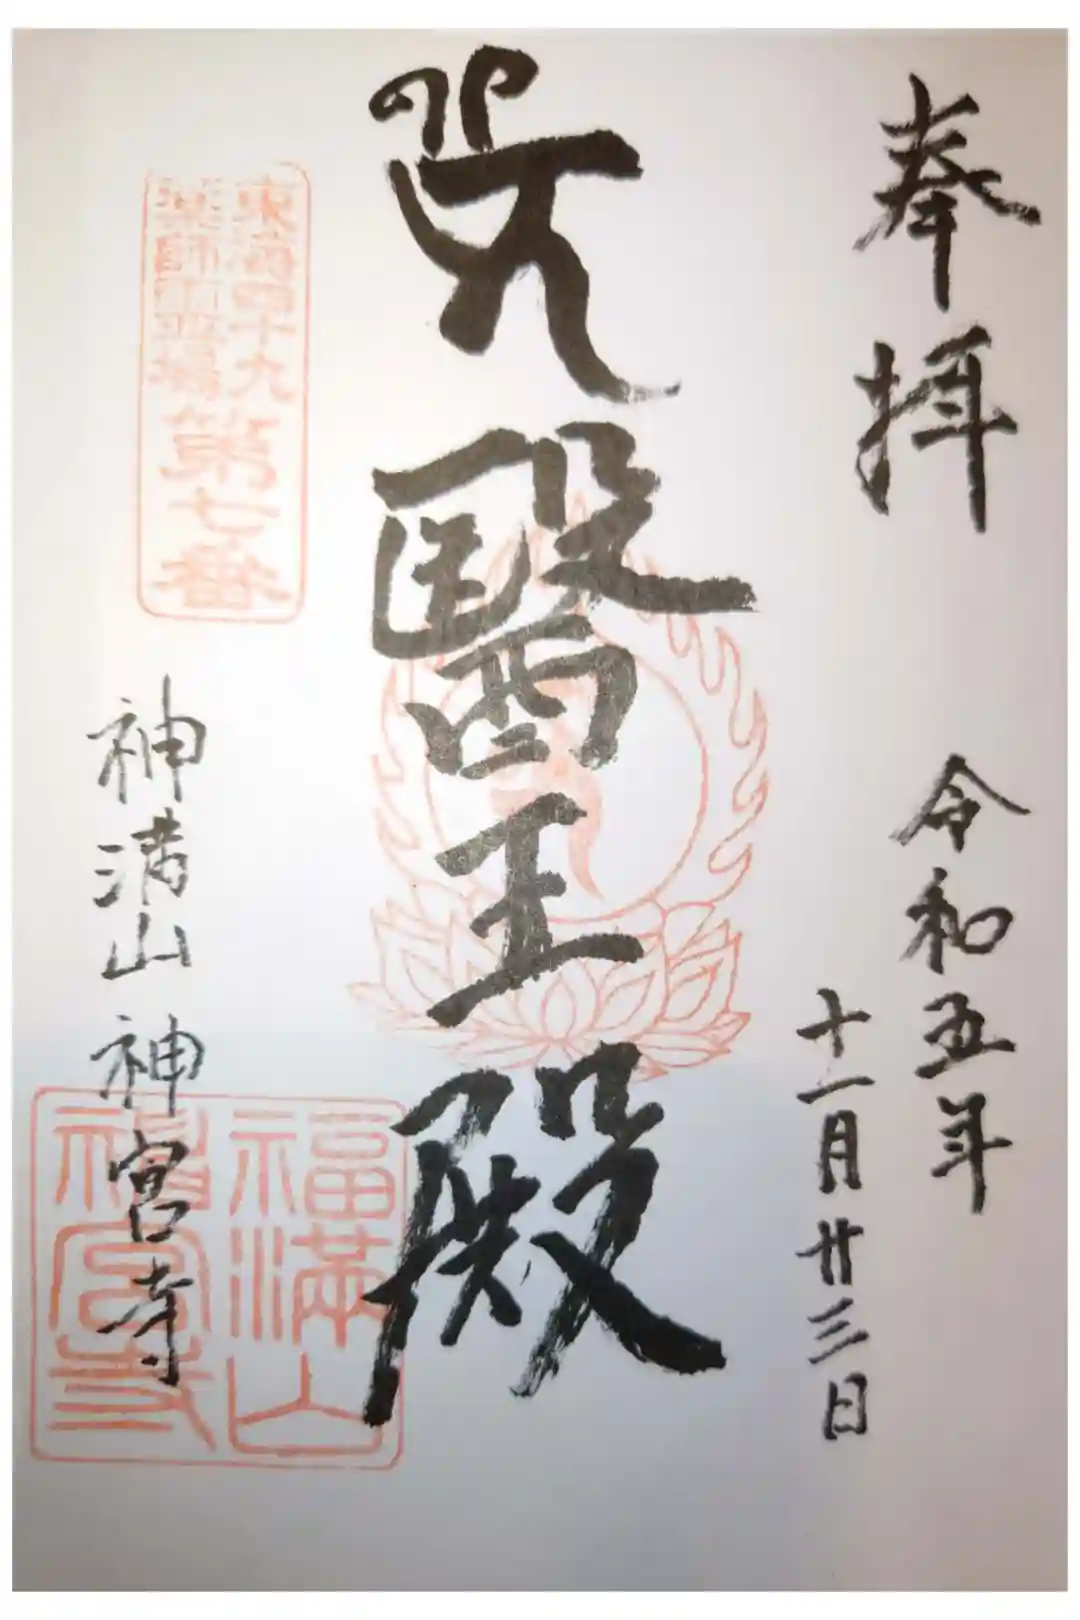 奉拝
令和五年
十一月廿三日
醫王殿
東海四十九
薬師霊場
第七番
神満山 神宮寺
福滿山
神宮寺